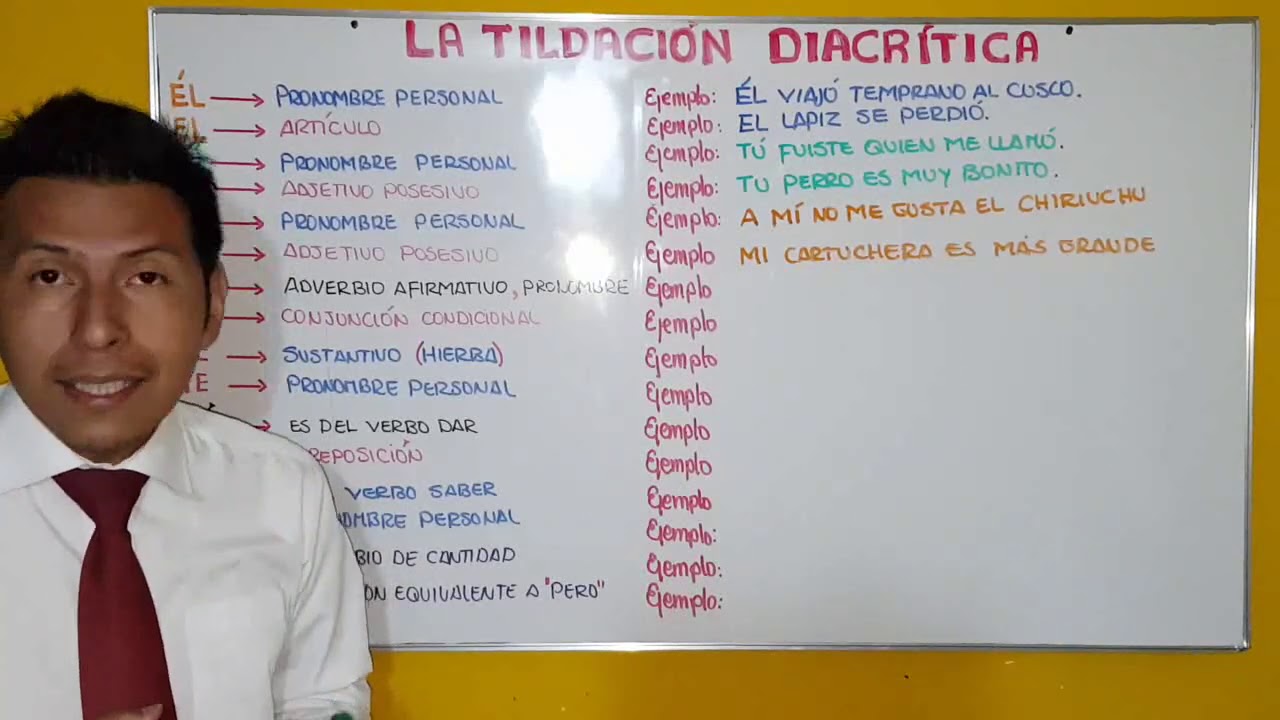 LA TILDACIÓN DIACRÍTICA
ÉL → PRONOMBRE PERSONAL Ejemplo: ÉL VIAJÓ TEMPRANO AL CUSCO.
EL → ARTÍCULO Ejemplo: EL LAPIZ SE PERDIÓ.
→ PRONOMBRE PERSONAL Ejemplo: TÚ FUISTE QUIEN ME LLAMÓ.
→ ADJETIVO POSESIVO Ejemplo: TU PERRO ES MUY BONITO.
→ PRONOMBRE PERSONAL Ejemplo: A MÍ NO ME GUSTA EL CHIRIUCHU
→ ADJETIVO POSESIVO Ejemplo MI CARTUCHERA ES MÁS GRANDE
→ ADVERBIO AFIRMATIVO, PRONOMBRE Ejemplo
→ CONJUNCIÓN CONDICIONAL Ejemplo
→ SUSTANTIVO (HIERBA) Ejemplo
TE → PRONOMBRE PERSONAL Ejemplo
→ ES DEL VERBO DAR Ejemplo
REPOSICIÓN Ejemplo
VERBO SABER Ejemplo
OMBRE PERSONAL Ejemplo:
BIO DE CANTIDAD Ejemplo:
ÓN EQUIVALENTE A "PERO" Ejemplo: